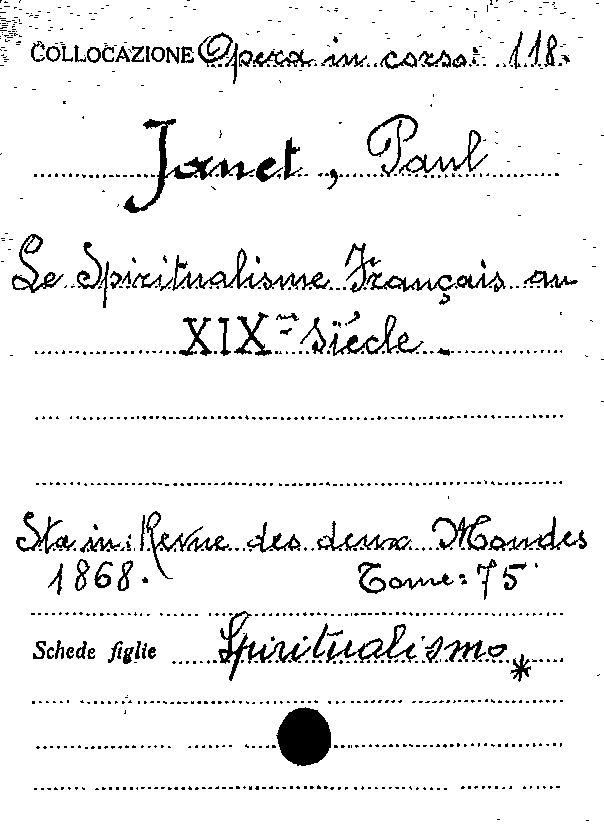 COLLOCAZIONE Opera in corso: 118.
Janet, Paul
Le Spiritualisme Français au
XIXme Siécle.
Sta in: Revue des deux Mondes
1868. Tome: 75
Schede figlie Spiritualismo *